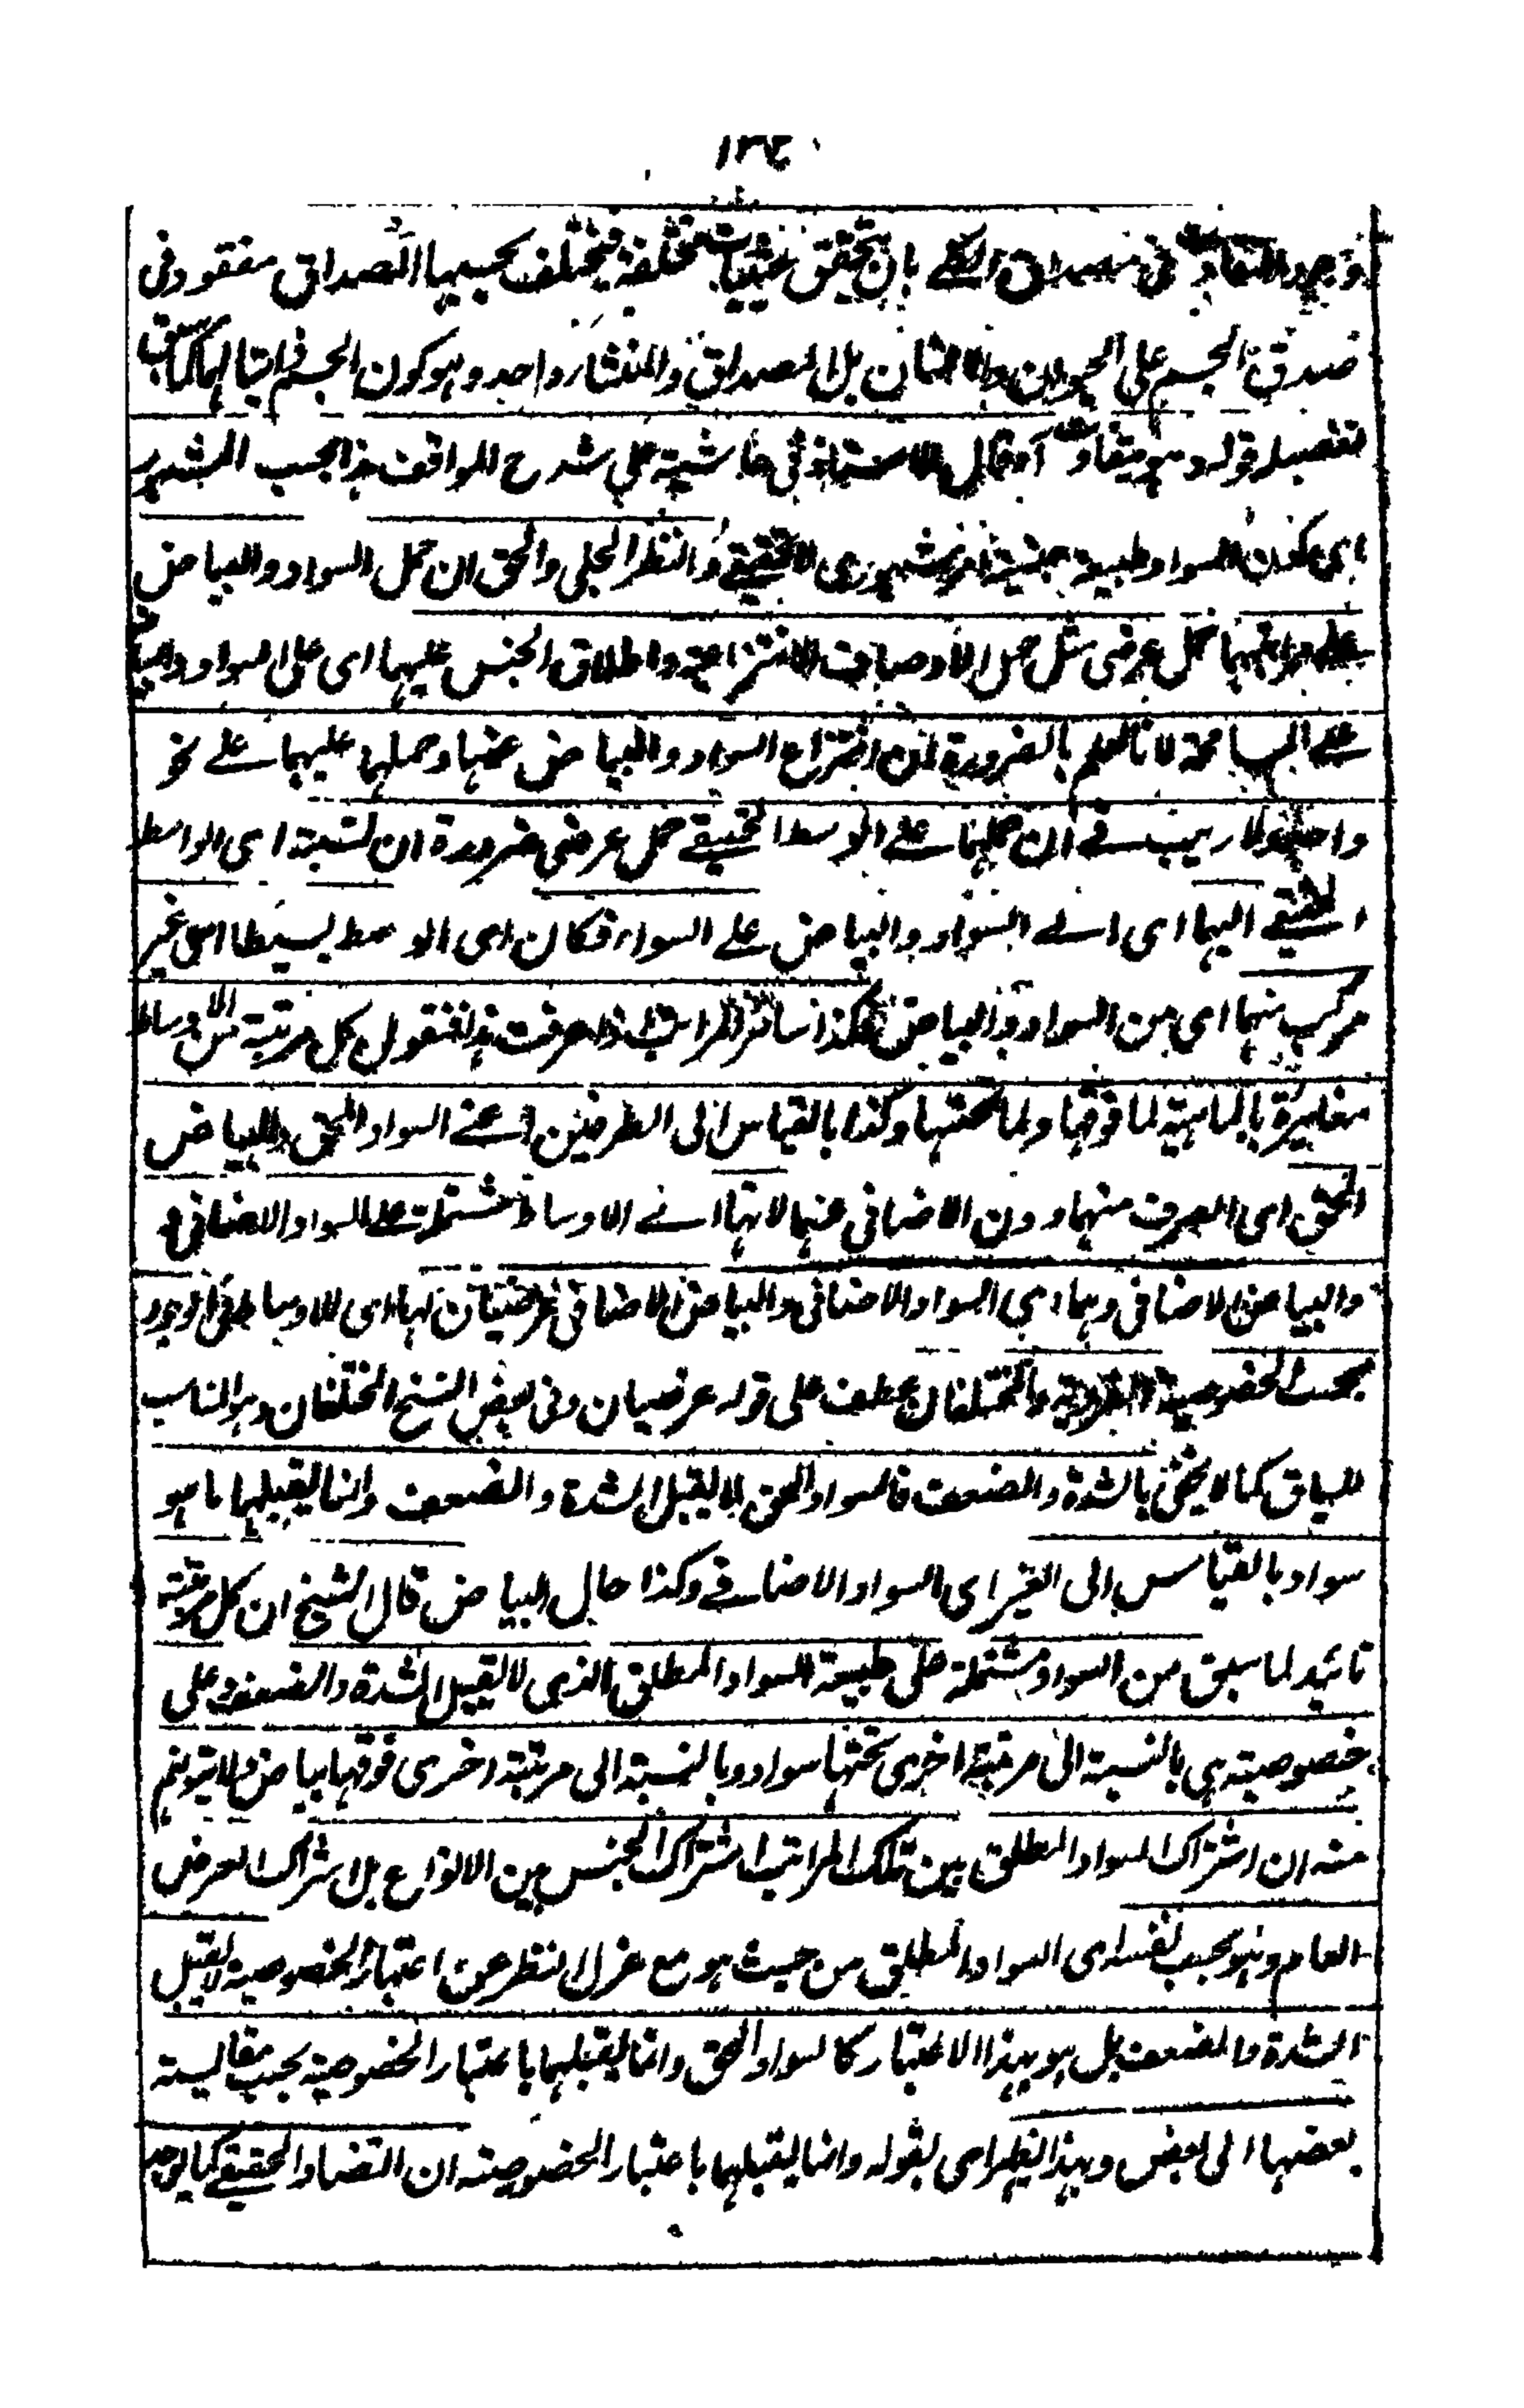 وجود التفاوت في مصداق الكلي بان يتحقق حيثيات مختلفة فيختلف بحسبها المصداق مفقود في
صدق الجسم على الحيوان والانسان بل المصداق والمنشاء واحد وهو كون الجسم ذاتيا لهما كما سبق
تفصيله قوله وهو متفاوت آه قال الاستاذ في حاشيته على شرح المواقف هذا بحسب المشهور
اى كون السواد طبيعة جنسية امر مشهورى لا تحقيقي والنظر الجلى والحق ان حمل السواد والبياض
على مراتبهما حمل عرضى مثل حمل الاوصاف الانتزاعية واطلاق الجنس عليهما اى على السواد والبياض
على المسامحة لانا نعلم بالضرورة ان انتزاع السواد والبياض عنها وحملهما عليهما على نحو
واحد ولا ريب في ان حملهما على الوسط الحقيقي حمل عرضى ضرورة ان نسبته اى الواسط
الحقيقي اليهما اى الى السواد والبياض على السواء فكان اى الوسط بسيطا اى غير
مركب منهما اى من السواد والبياض هكذا سائر المراتب اذا عرفت هذا فنقول كل مرتبة من الاوساط
مغايرة بالماهية لما فوقها ولما تحتها وكذا بالقياس الى الطرفين اعنى السواد الحق والبياض
الحق اى الصرف منهما دون الاضافى منهما لانها اى الاوساط مشتملة على السواد الاضافى
والبياض الاضافى وهما اى السواد الاضافى والبياض الاضافى عرضيان لها اى للاوساط في الوجود
بحسب الخصوصية الفردية والمختلفان عطف على قوله عرضيان وفى بعض النسخ المختلفان وهو المناسب
للسياق كما لا يخفى بالشدة والضعف فالسواد الحق لا يقبل الشدة والضعف وانما يقبلهما ما هو
سواد بالقياس الى الغير اى السواد الاضافي وكذا حال البياض قال الشيخ ان كل مرتبة
تائيد لما سبق من السواد مشتملة على طبيعة السواد المطلق الذى لا يقبل الشدة والضعف وعلى
خصوصية هى بالنسبة الى مرتبة اخرى تحتها سواد وبالنسبة الى مرتبة اخرى فوقها بياض ولا يتوهم
منه ان اشتراك السواد المطلق بين تلك المراتب اشتراك الجنس بين الانواع بل اشتراك العرض
العام وهو بحسب نفسه اى السواد المطلق من حيث هو مع عزل النظر عن اعتبار الخصوصية لا يقبل
الشدة والضعف بل هو بهذا الاعتبار كالسواد الحق وانما يقبلهما باعتبار الخصوصية بحسب مقايسة
بعضها الى بعض وبهذا ظهر اى بقوله وانما يقبلهما باعتبار الخصوصية ان التضاد الحقيقي كما يوجد